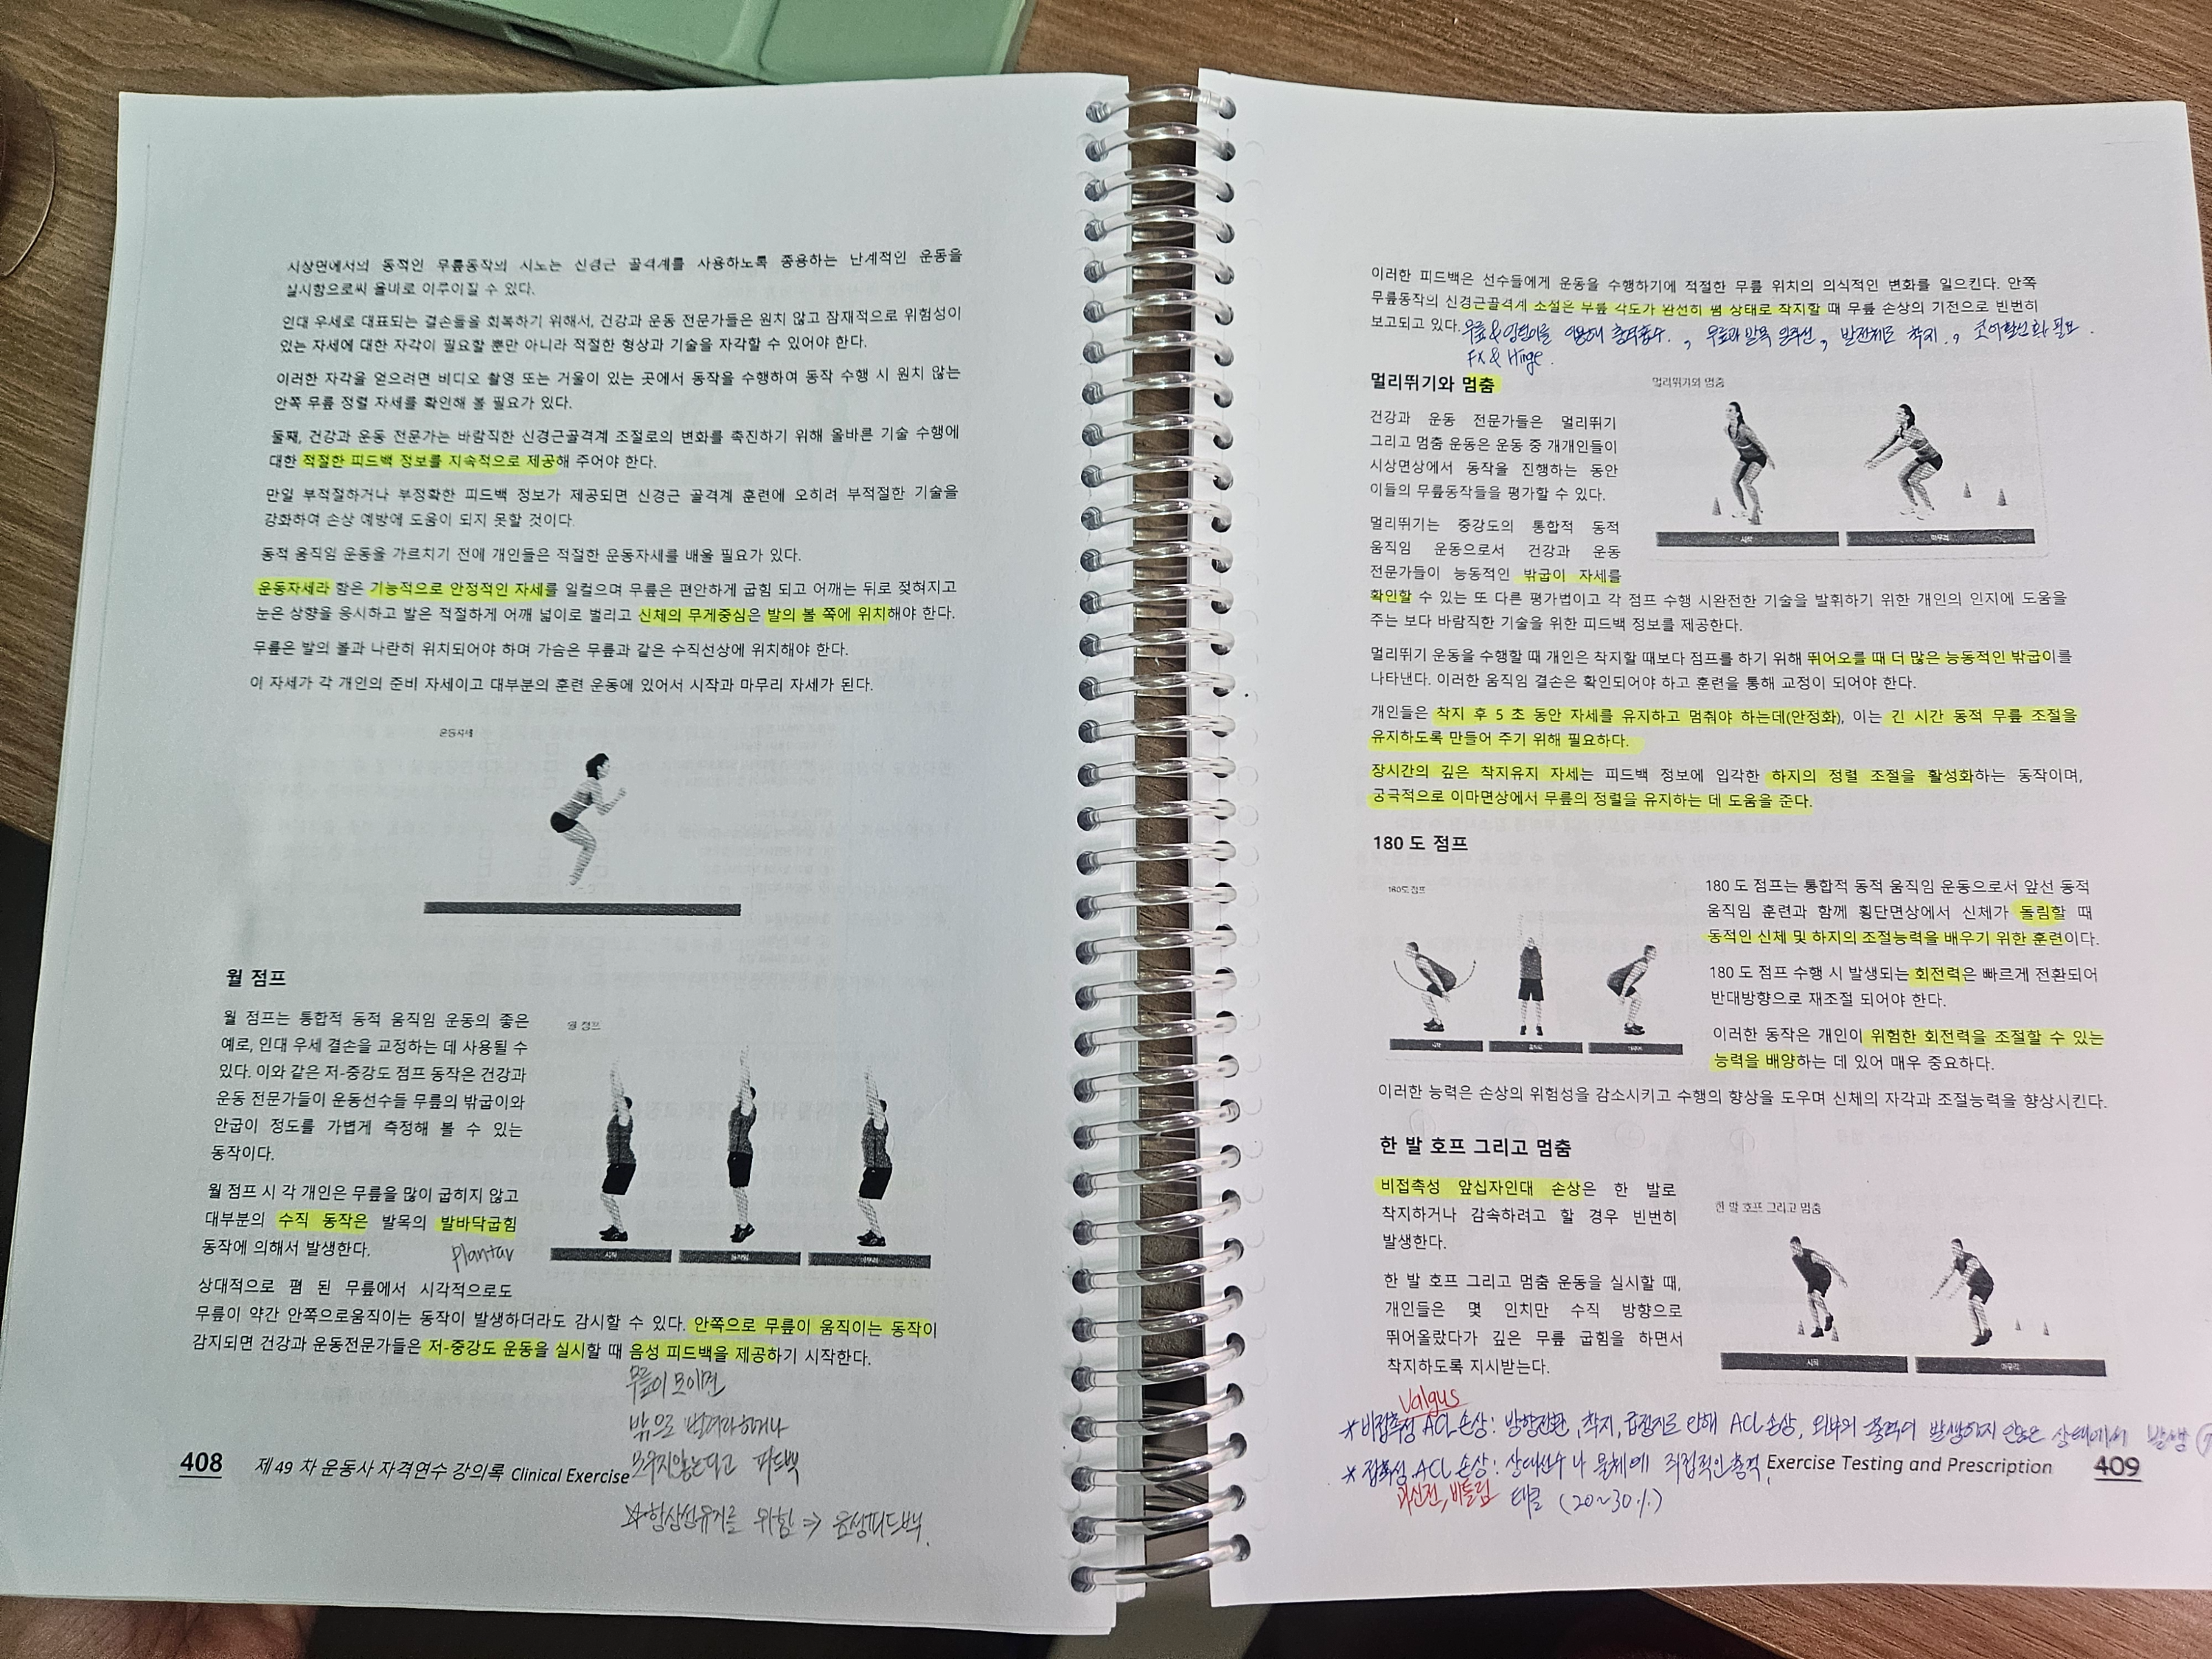 시상면에서의 동적인 무릎동작의 시도는 신경근 골격계를 사용하도록 종용하는 단계적인 운동을
실시함으로써 올바로 이루어질 수 있다.
인대 우세로 대표되는 결손들을 회복하기 위해서, 건강과 운동 전문가들은 원치 않고 잠재적으로 위험성이
있는 자세에 대한 자각이 필요할 뿐만 아니라 적절한 형상과 기술을 자각할 수 있어야 한다.
이러한 자각을 얻으려면 비디오 촬영 또는 거울이 있는 곳에서 동작을 수행하여 동작 수행 시 원치 않는
안쪽 무릎 정렬 자세를 확인해 볼 필요가 있다.
둘째, 건강과 운동 전문가는 바람직한 신경근골격계 조절로의 변화를 촉진하기 위해 올바른 기술 수행에
대한 적절한 피드백 정보를 지속적으로 제공해 주어야 한다.
만일 부적절하거나 부정확한 피드백 정보가 제공되면 신경근 골격계 훈련에 오히려 부적절한 기술을
강화하여 손상 예방에 도움이 되지 못할 것이다.
동적 움직임 운동을 가르치기 전에 개인들은 적절한 운동자세를 배울 필요가 있다.
운동자세라 함은 기능적으로 안정적인 자세를 일컬으며 무릎은 편안하게 굽힘 되고 어깨는 뒤로 젖혀지고
눈은 상향을 응시하고 발은 적절하게 어깨 넓이로 벌리고 신체의 무게중심은 발의 볼 쪽에 위치해야 한다.
무릎은 발의 볼과 나란히 위치되어야 하며 가슴은 무릎과 같은 수직선상에 위치해야 한다.
이 자세가 각 개인의 준비 자세이고 대부분의 훈련 운동에 있어서 시작과 마무리 자세가 된다.
운동자세
월 점프
월 점프는 통합적 동적 움직임 운동의 좋은
예로, 인대 우세 결손을 교정하는 데 사용될 수
있다. 이와 같은 저-중강도 점프 동작은 건강과
운동 전문가들이 운동선수들 무릎의 밖굽이와
안굽이 정도를 가볍게 측정해 볼 수 있는
동작이다.
월 점프 시 각 개인은 무릎을 많이 굽히지 않고
대부분의 수직 동작은 발목의 발바닥굽힘
동작에 의해서 발생한다.
plantar
월 점프
시작
움직임
마무리
상대적으로 폄 된 무릎에서 시각적으로도
무릎이 약간 안쪽으로움직이는 동작이 발생하더라도 감시할 수 있다. 안쪽으로 무릎이 움직이는 동작이
감지되면 건강과 운동전문가들은 저-중강도 운동을 실시할 때 음성 피드백을 제공하기 시작한다.
무릎이 모이면
밖으로 벌려라하거나
모우지않는다고 피드백
☆항상성유지를 위함 ⇒ 음성피드백.
408 제 49 차 운동사 자격연수 강의록 Clinical Exercise
이러한 피드백은 선수들에게 운동을 수행하기에 적절한 무릎 위치의 의식적인 변화를 일으킨다. 안쪽
무릎동작의 신경근골격계 소절은 무릎 각도가 완전히 폄 상태로 착지할 때 무릎 손상의 기전으로 빈번히
보고되고 있다.
무릎&엉덩이를 이용해 충격흡수. , 무릎과 발목 일직선, 발전체로 착지, 코어활성화 필요.
FX & Hinge.
멀리뛰기와 멈춤
건강과 운동 전문가들은 멀리뛰기
그리고 멈춤 운동은 운동 중 개개인들이
시상면상에서 동작을 진행하는 동안
이들의 무릎동작들을 평가할 수 있다.
멀리뛰기와 멈춤
시작
마무리
멀리뛰기는 중강도의 통합적 동적
움직임 운동으로서 건강과 운동
전문가들이 능동적인 밖굽이 자세를
확인할 수 있는 또 다른 평가법이고 각 점프 수행 시완전한 기술을 발휘하기 위한 개인의 인지에 도움을
주는 보다 바람직한 기술을 위한 피드백 정보를 제공한다.
멀리뛰기 운동을 수행할 때 개인은 착지할 때보다 점프를 하기 위해 뛰어오를 때 더 많은 능동적인 밖굽이를
나타낸다. 이러한 움직임 결손은 확인되어야 하고 훈련을 통해 교정이 되어야 한다.
개인들은 착지 후 5 초 동안 자세를 유지하고 멈춰야 하는데(안정화), 이는 긴 시간 동적 무릎 조절을
유지하도록 만들어 주기 위해 필요하다.
장시간의 깊은 착지유지 자세는 피드백 정보에 입각한 하지의 정렬 조절을 활성화하는 동작이며,
궁극적으로 이마면상에서 무릎의 정렬을 유지하는 데 도움을 준다.
180 도 점프
180도 점프
시작
움직임
마무리
180 도 점프는 통합적 동적 움직임 운동으로서 앞선 동적
움직임 훈련과 함께 횡단면상에서 신체가 돌림할 때
동적인 신체 및 하지의 조절능력을 배우기 위한 훈련이다.
180 도 점프 수행 시 발생되는 회전력은 빠르게 전환되어
반대방향으로 재조절 되어야 한다.
이러한 동작은 개인이 위험한 회전력을 조절할 수 있는
능력을 배양하는 데 있어 매우 중요하다.
이러한 능력은 손상의 위험성을 감소시키고 수행의 향상을 도우며 신체의 자각과 조절능력을 향상시킨다.
한 발 호프 그리고 멈춤
비접촉성 앞십자인대 손상은 한 발로
착지하거나 감속하려고 할 경우 빈번히
발생한다.
한 발 호프 그리고 멈춤 운동을 실시할 때,
개인들은 몇 인치만 수직 방향으로
뛰어올랐다가 깊은 무릎 굽힘을 하면서
착지하도록 지시받는다.
한 발 호프 그리고 멈춤
시작
마무리
Valgus
*비접촉성 ACL손상: 방향전환, 착지, 급정지로 인해 ACL손상, 외부의 충격이 발생하지 않은 상태에서 발생
*접촉성 ACL 손상: 상대선수나 물체에 직접적인 충격,
과신전, 비틀림 태클 (20~30%)
Exercise Testing and Prescription 409